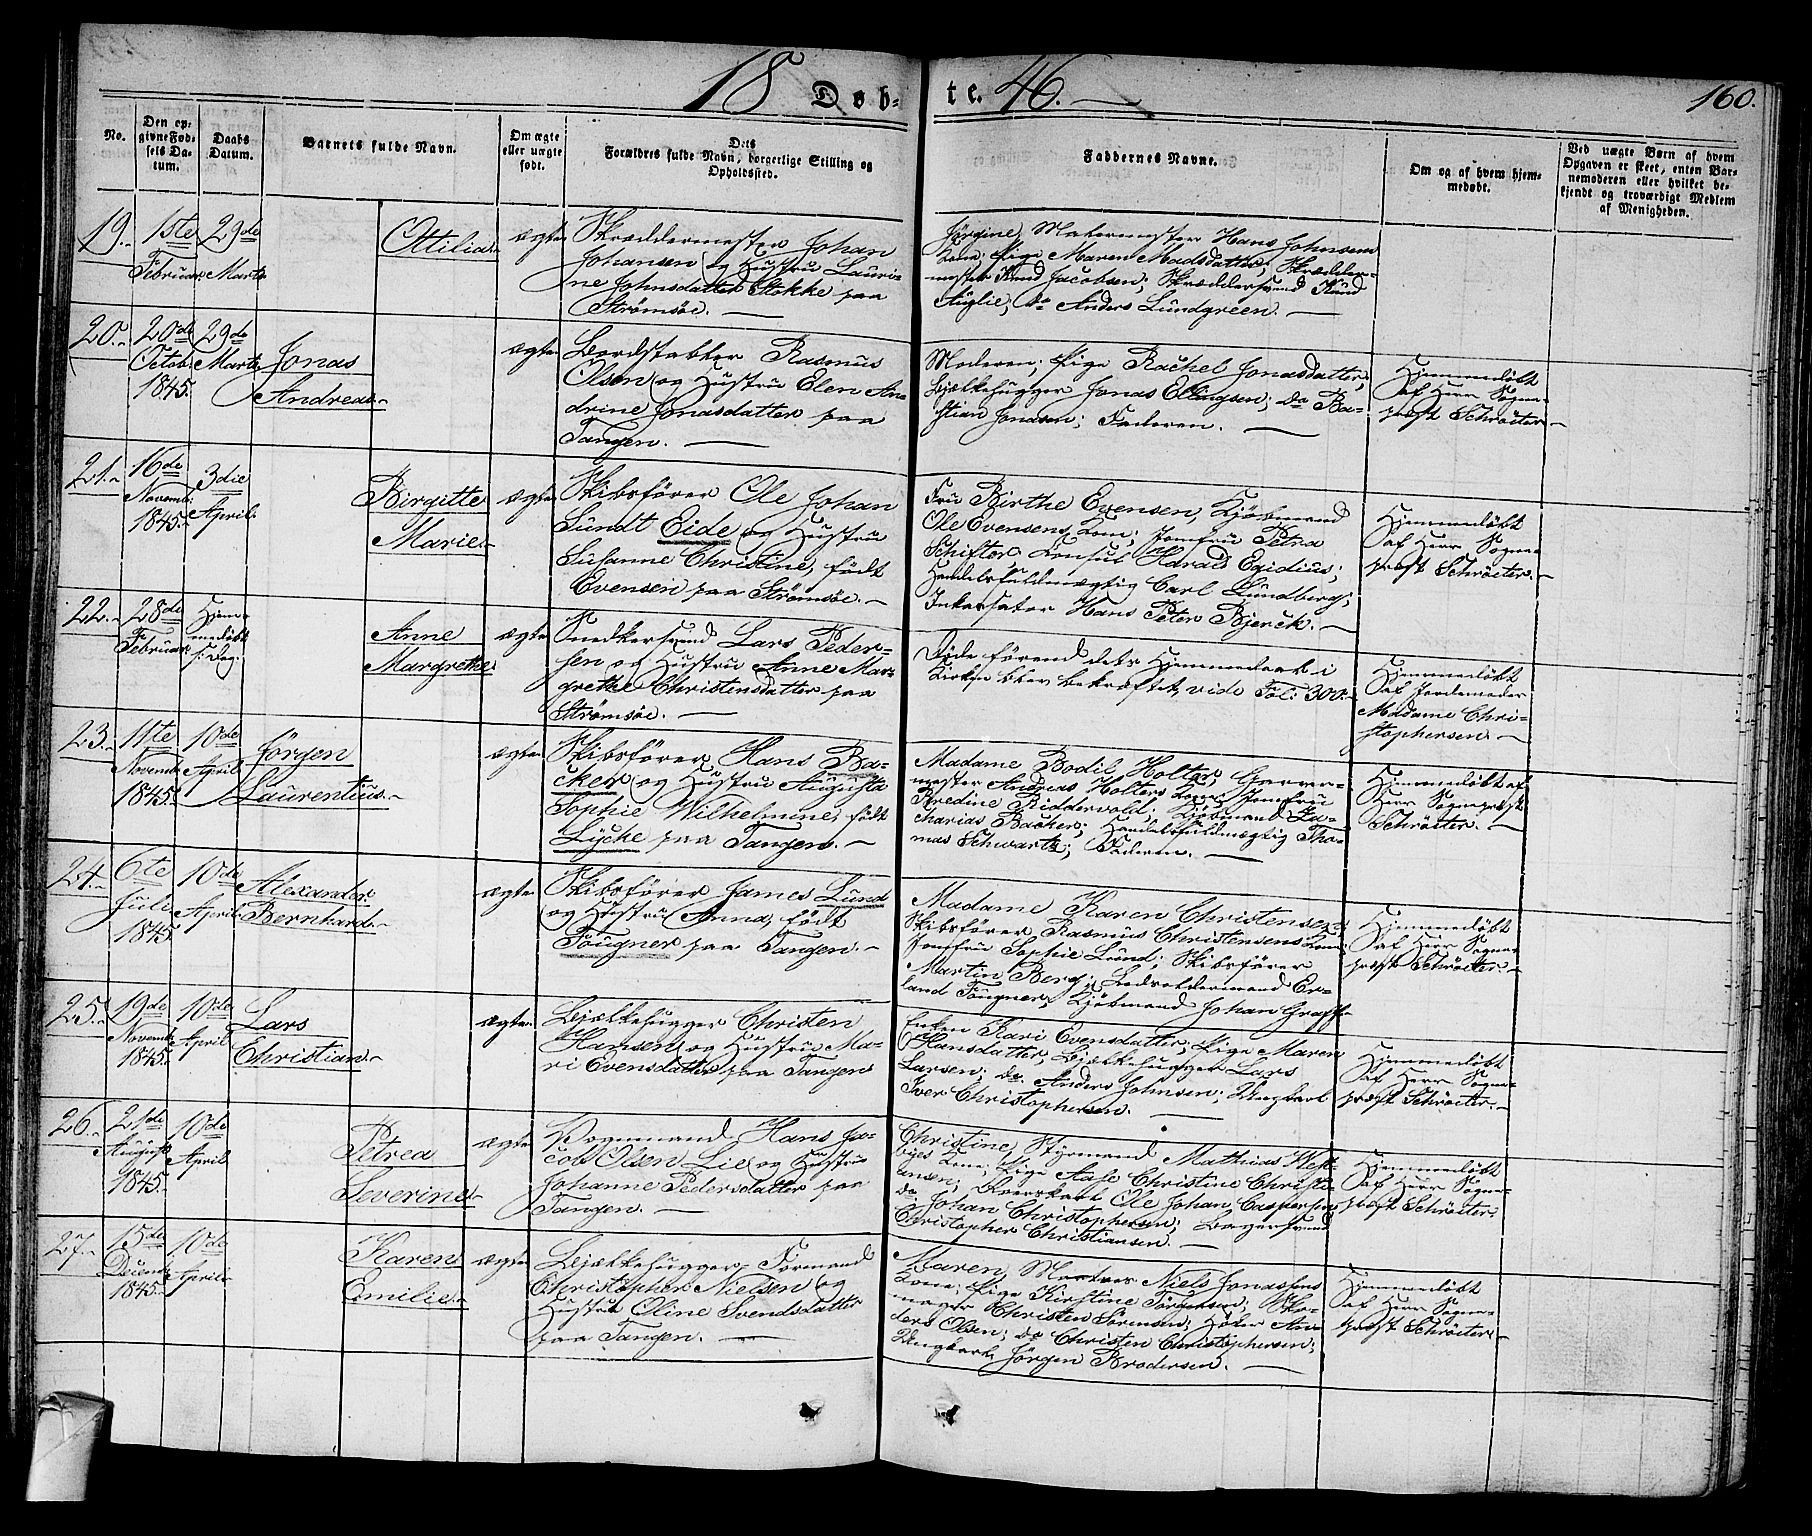 18 Døb- te. 46. 160.
No.
Den opgivne Fødsels Datum.
Daabs Datum.
Barnets fulde Navn.
Om ægte eller uægte født.
Dets Forældres fulde Navn, borgerlige Stilling og Opholdssted.
Faddernes Navne.
Om og af hvem hjemmedøbt.
Ved uægte Børn af hvem Opgaven er skeet, enten Barnemoderen eller hvilket bekjendt og troværdigt Medlem af Menigheden.
19.
1ste Februar
29de Marts
Ottilia
ægte
Skræddermester Johan
Johansen og Hustrü Lauri-
ne Johnsdatter Stokke paa
Strømsøe.
Jørgine, Målermester Hans Johnsens
Kone; Pige Maren Madsdatter; Skrædder-
mester Knud Jacobsen; Skræddersvend Knud
Auglie; do Anders Lundgreen.
20.
20de Octob. 1845.
29de Marts
Jonas
Andreas
ægte
Bordstabler Rasmus
Olsen og Hustrü Elen An-
drine Jonasdatter paa
Tangen.
Moderen; Pige Rachel Jonasdatter;
Bjælkehugger Jonas Ellingsen; do Ba-
stian Jonassen; Faderen.
Hjemmedøbt
af Herr Sogne-
præst Schröeter
21.
16de Novemb. 1845.
3die April.
Birgitte
Marie
ægte
Skibsfører Ole Johan
Sundt Eide og Hustrü
Susanne Christine, født
Evensen paa Strømsøe.
Frü Birthe Evensen, Kjøbmand
Ole Evensens Kone; Jomfrü Petra
Schifter, Konsul Harald Egidius;
Handelsfuldmægtig Carl Lundberg;
Inkassator Hans Peter Bjerck.
Hjemmedøbt
af Herr Sogne-
præst Schröeter.
22.
28de Februar
Hjem-
medøbt
s: Dag.
Anne
Margrethe
ægte
Snedkersvend Lars Peder-
sen og Hustrü Anne Mar-
grethe Christensdatter paa
Strømsøe.
Døde førend dets Hjemmedaab i
Kirken blev bekræftet, vide Fol: 300.
Hjemmedøbt
af Jordemoder
Madame Chri-
stophersen.
23.
11te Novemb. 1845.
10de April
Jörgen
Laurentius.
ægte
Skibsfører Hans Ba-
cker og Hustrü Augusta
Sophie Wilhelmine, født
Lycke paa Tangen.
Madame Bodil Holter, Garver-
mester Andreas Holters Kone; Jomfrü
Fredine Riddervold; Kjøbmand Za-
charias Backer; Handelsfuldmægtig Tho-
mas Schwartz; Faderen.
Hjemmedøbt af
Herr Sognepræst
Schröeter.
24.
6te Juli 1845
10de April
Alexander
Bernhard.
ægte
Skibsfører James Lund
og Hustrü Anna, født
Tougner paa Tangen.
Madame Karen Christensen,
Skibsfører Rasmus Christensens Kone;
Jomfrü Sophie Lund; Skibsfører
Martin Berg; Lodsoldermand Er-
land Tougner; Kjøbmand Johan Graff
Hjemmedøbt
af Herr Sogne-
præst Schröeter.
25.
19de Novemb. 1845.
10de April
Lars
Christian
ægte
Bjælkehugger Christen
Hansen og Hustrü Ma-
ri Evensdatter paa Tangen
Enken Kari Evensdatter; Pige Maren
Hansdatter; Bjælkehugger Lars
Larsen; do Anders Johnsen; Ungkarl
Iver Christophersen.
Hjemmedøbt
af Herr Sogne-
præst Schröeter.
26.
21de August 1845.
10de April
Petrea
Severine
ægte
Vognmand Hans Ja-
cob Olsen Lie og Hustrü
Johanne Pedersdatter paa
Tangen.
Christine, Styrmand Mathias West-
byes Kone; Pige Aase Christine Christi-
ansen; Kverskarl Ole Johan Caspersen;
do Johan Christophersen; Bagersvend
Christopher Christiansen.
Hjemmedøbt
af Herr Sogne-
præst Schröeter.
27.
15de Decemb. 1845.
10de April
Karen
Emilie.
ægte
Bjælkehugger-Formand
Christopher Nielsen og
Hustrü Oline Svendsdatter
paa Tangen.
Maren, Matros Niels Jonassens
Kone; Pige Kirstine Jørgensen; Sko-
mager Christen Sörensen; Høker An-
ders Olsen; do Christen Christophersen;
Ungkarl Jörgen Brodersen.
Hjemmedøbt
af Herr Sogne-
præst Schröeter